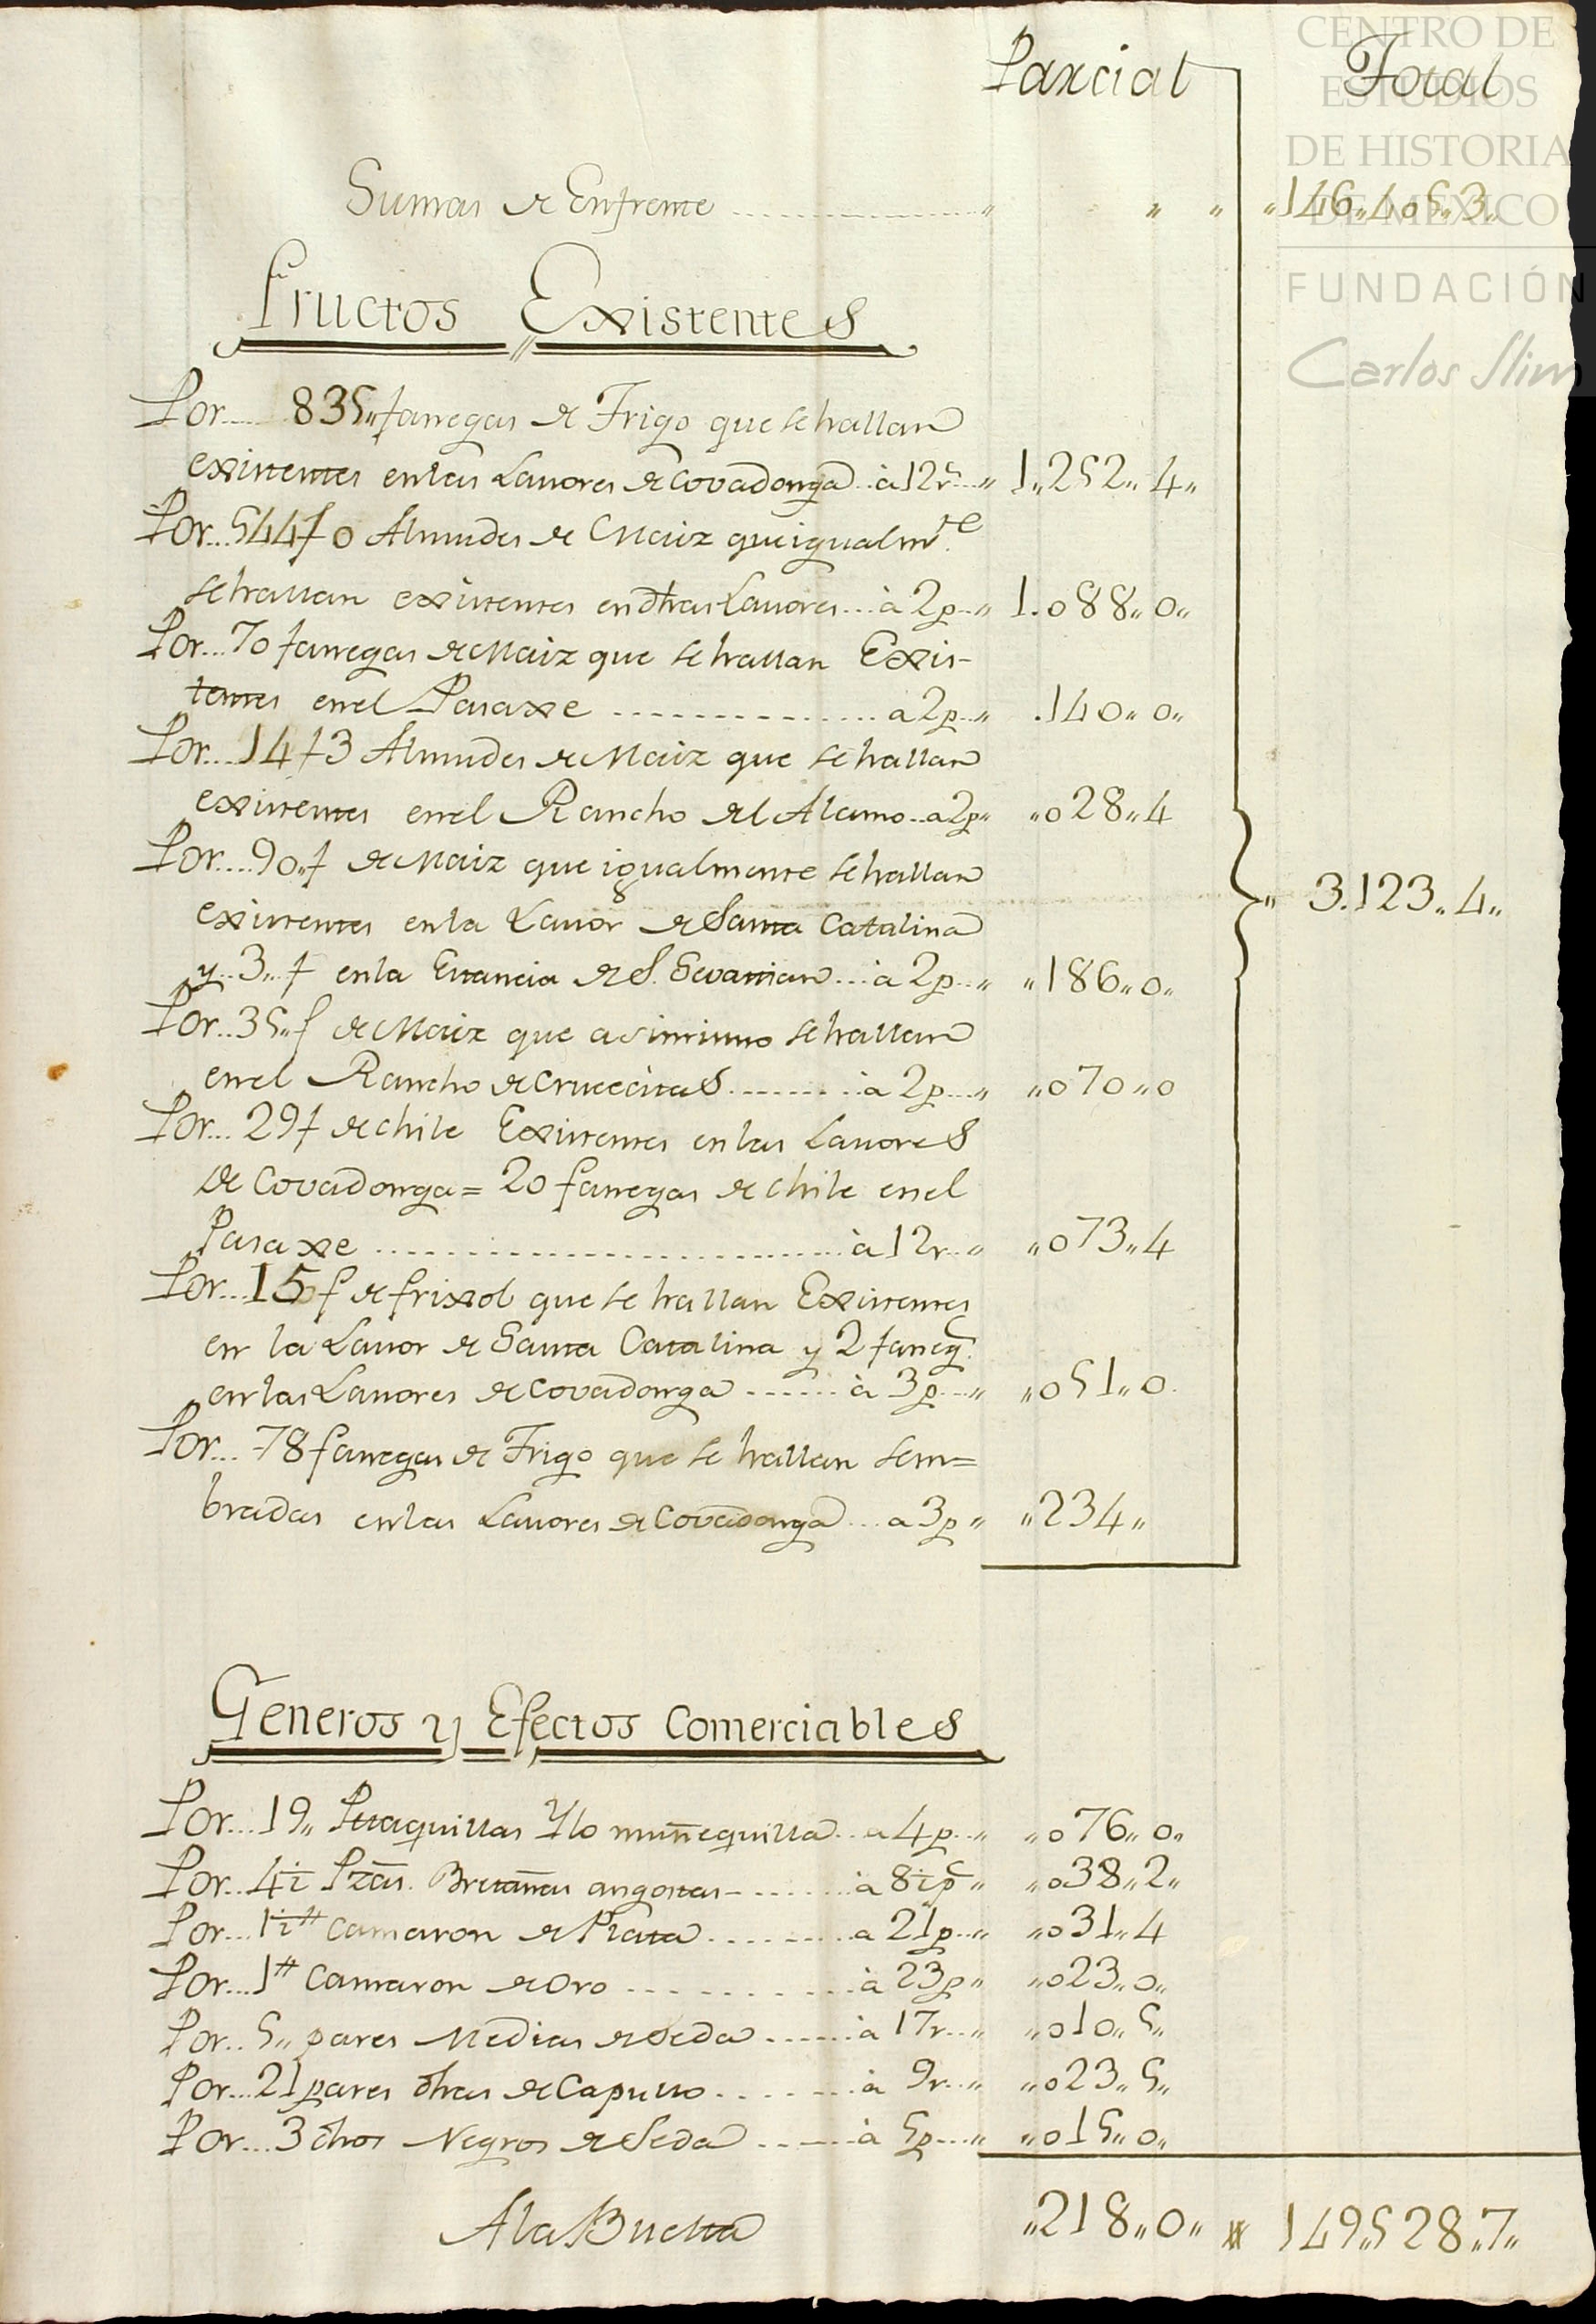 CENTRO DE
ESTUDIOS
DE HISTORIA
DE MEXICO
FUNDACIÓN
Carlos Slim
Parcial Total
Sumas de Enfrente „ „ „ „146„405„3„
Fructos Existentes
Por 835„ fanegas de Trigo que se hallan
existentes en las Lavores de Covadonga à 12 rs „ 1„252„4„
Por 544 f 0 Almudes de Maiz que igualmte
se hallan existentes en dhas Lavores à 2 p „ 1.088„0„
Por 70 fanegas de Maiz que se hallan Exis-
tentes en el Pasaxe a 2 p „ .140„0„
Por 14 f 3 Almudes de Maiz que se hallan
existentes en el Rancho del Alamo a 2 p „ „028„4
Por 90„ f de Maiz que igualmente se hallan
existentes en la Lavor de Santa Catalina
y 3„ f en la Estancia de S. Sevastian à 2 p „ „186„0„
Por 35„ f de Maiz que asimismo se hallan
en el Rancho de Crucecitas à 2 p „ „070„0
Por 29 f de chile Existentes en las Lavores
de Covadonga = 20 fanegas de chile en el
Pasaxe à 12 r „ „073„4
Por 15 f de frixol que se hallan Existentes
en la Lavor de Santa Catalina y 2 faneg.s
en las Lavores de Covadonga à 3 p „ „051„0
Por 78 fanegas de Trigo que se hallan sem=
bradas en las Lavores de Covadonga a 3 p „ „234„
„ 3.123„4„
Generos y Efectos Comerciables
Por 19„ Petaquillas Ylo muñequilla a 4 p „ „076„0„
Por 4½ Pzas. Bretañas angostas à 8½ ps „ „038„2„
Por 1½ # Camaron de Plata a 21 p „ „031„4
Por 1 # Camaron de Oro à 23 p „ „023„0„
Por 5„ pares Medias de Seda à 17 r „ „010„5„
Por 21 pares dhas de Capullo à 9 r „ „023„5„
Por 3 dhos Negros de Seda à 5 p „ „015„0„
A la Buelta „218„0„ 149„528„7„